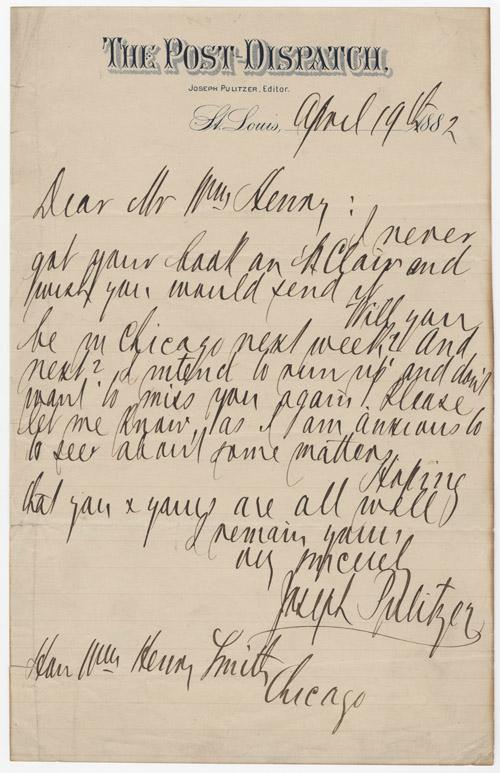 THE POST-DISPATCH.
JOSEPH PULITZER, Editor.
St. Louis, April 19th 1882
Dear Mr Wm Henry :
I never
got your book on St Clair and
wish you would send it.
Will you
be in Chicago next week? And
next? I intend to run up and don't
want to miss you again. Please
let me know, as I am anxious to
to see about some matters.
Hoping
that you & yours are all well
I remain yours
very sincerely
Joseph Pulitzer
Hon Wm Henry Smith
Chicago